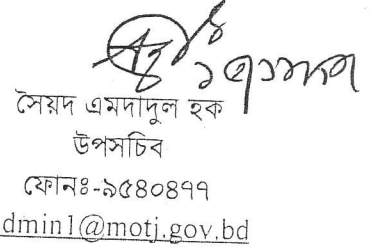 সৈয়দ এমদাদুল হক
উপসচিব
ফোনঃ-৯৫৪০৪৭৭
dmin1@motj.gov.bd